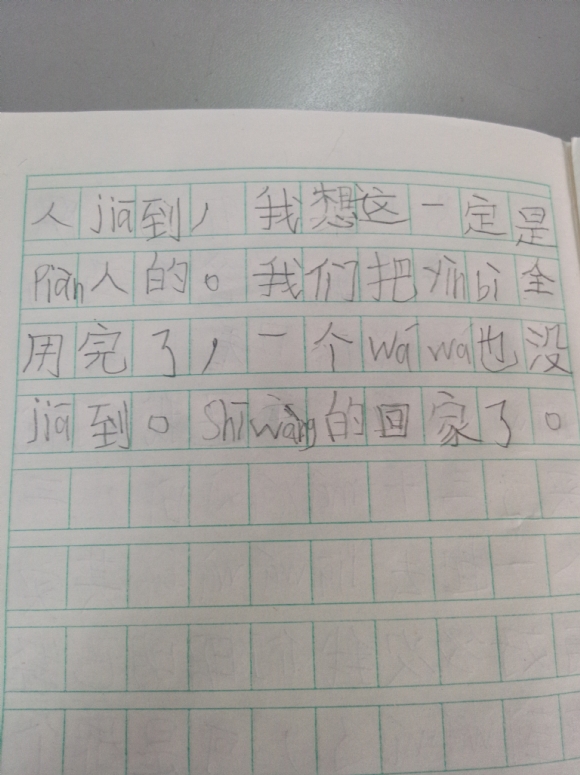 人jiā到，我想这一定是
piàn人的。我们把yìnbì全
用完了，一个wáwá也没
jiā到。Shīwàng的回家了。